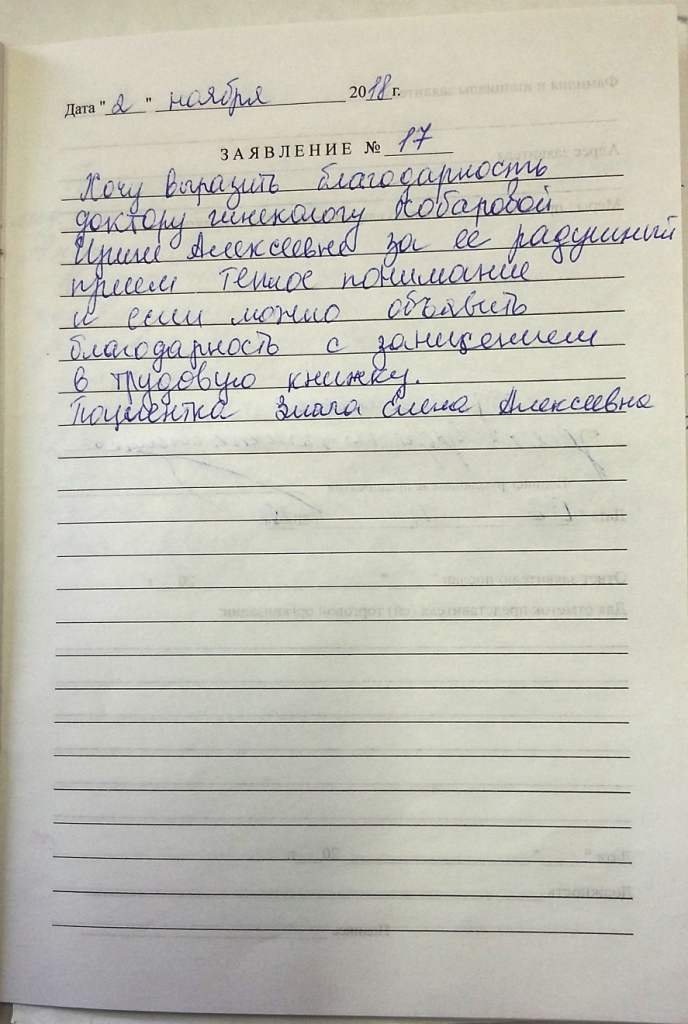 Дата "2" ноября 2018 г.
ЗАЯВЛЕНИЕ № 17
Хочу выразить благодарность
доктору гинекологу Хобаровой
Ирине Алексеевне за её радушный
прием теплое понимание
и если можно объявить
благодарность с занисением
в трудовую книжку.
Пациентка Елена Алексеевна